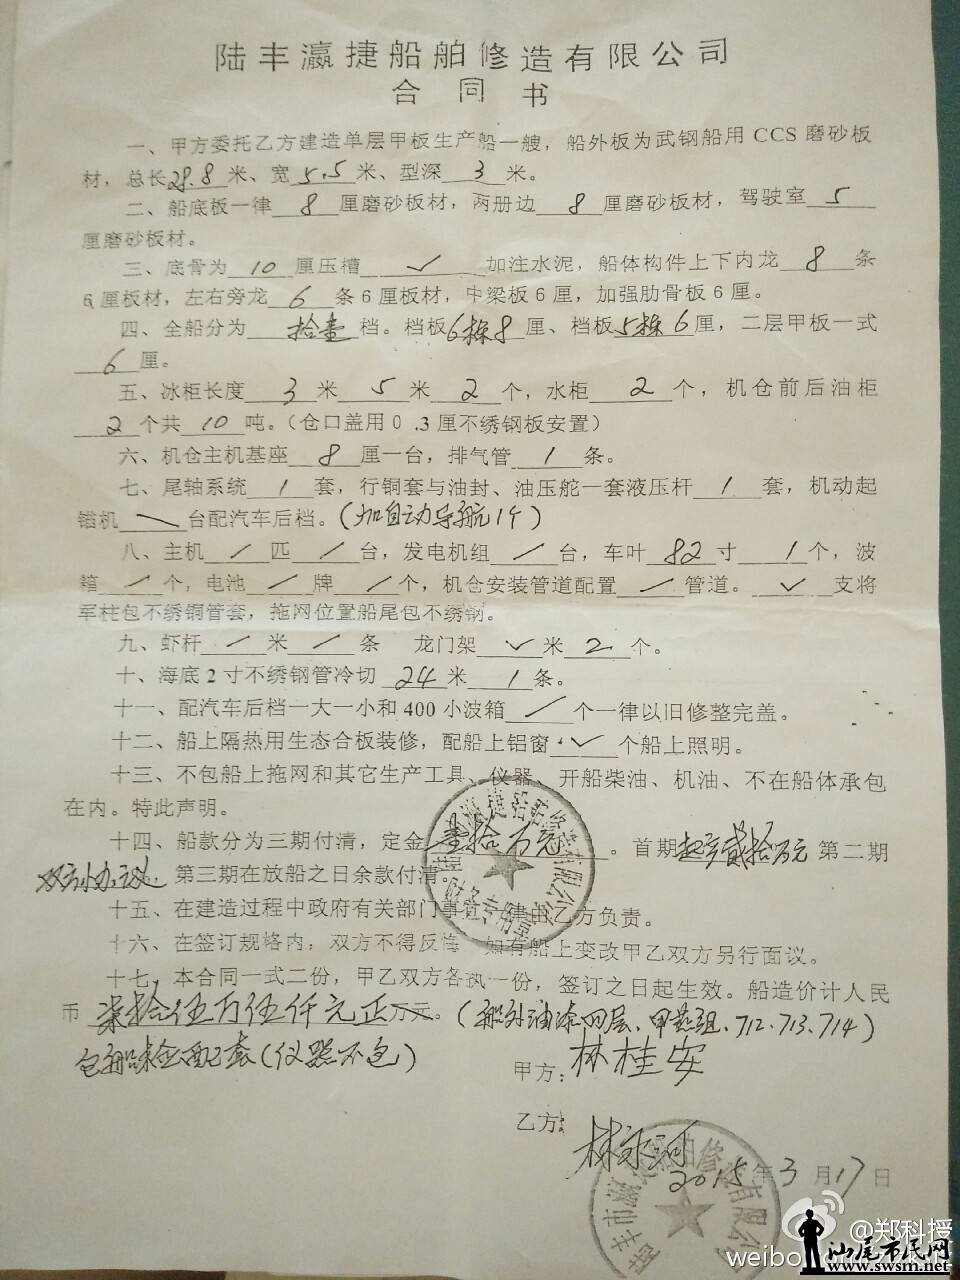 陆丰瀛捷船舶修造有限公司
合同书
一、甲方委托乙方建造单层甲板生产船一艘，船外板为武钢船用CCS磨砂板
材，总长28.8米、宽5.5米、型深3米。
二、船底板一律8厘磨砂板材，两册边8厘磨砂板材，驾驶室5
厘磨砂板材。
三、底骨为10厘压槽✓加注水泥，船体构件上下内龙8条
6厘板材，左右旁龙6条6厘板材，中梁板6厘，加强肋骨板6厘。
四、全船分为拾壹档。档板6栋8厘、档板5栋6厘，二层甲板一式
6厘。
五、冰柜长度3米5米2个，水柜2个，机仓前后油柜
2个共10吨。（仓口盖用0.3厘不绣钢板安置）
六、机仓主机基座8厘一台，排气管1条。
七、尾轴系统1套，行铜套与油封、油压舵一套液压杆1套，机动起
锚机\台配汽车后档。（加自动导航1个）
八、主机/匹/台，发电机组/台，车叶82寸1个，波
箱/个，电池/牌/个，机仓安装管道配置/管道。✓支将
军柱包不绣钢管套，拖网位置船尾包不绣钢。
九、虾杆/米/条 龙门架✓米2个。
十、海底2寸不绣钢管冷切24米1条。
十一、配汽车后档一大一小和400小波箱/个一律以旧修整完盖。
十二、船上隔热用生态合板装修，配船上铝窗✓个船上照明。
十三、不包船上拖网和其它生产工具、仪器、开船柴油、机油、不在船体承包
在内。特此声明。
十四、船款分为三期付清，定金壹拾万元。首期起步贰拾万元第二期
双方协议，第三期在放船之日余款付清。
十五、在建造过程中政府有关部门事宜一律由乙方负责。
十六、在签订规格内，双方不得反悔，如有船上变改甲乙双方另行面议。
十七、本合同一式二份，甲乙双方各执一份，签订之日起生效。船造价计人民
币柒拾伍万伍仟元正万元。（船外油漆四层、甲燕组、712、713、714）
包船味全配套（仪器不包）
甲方：林桂安
乙方：林永河
2015年3月17日
陆丰市瀛捷船舶修造有限公司
财务专用章
@郑科授
weibo
汕尾市民网
www.swsm.net